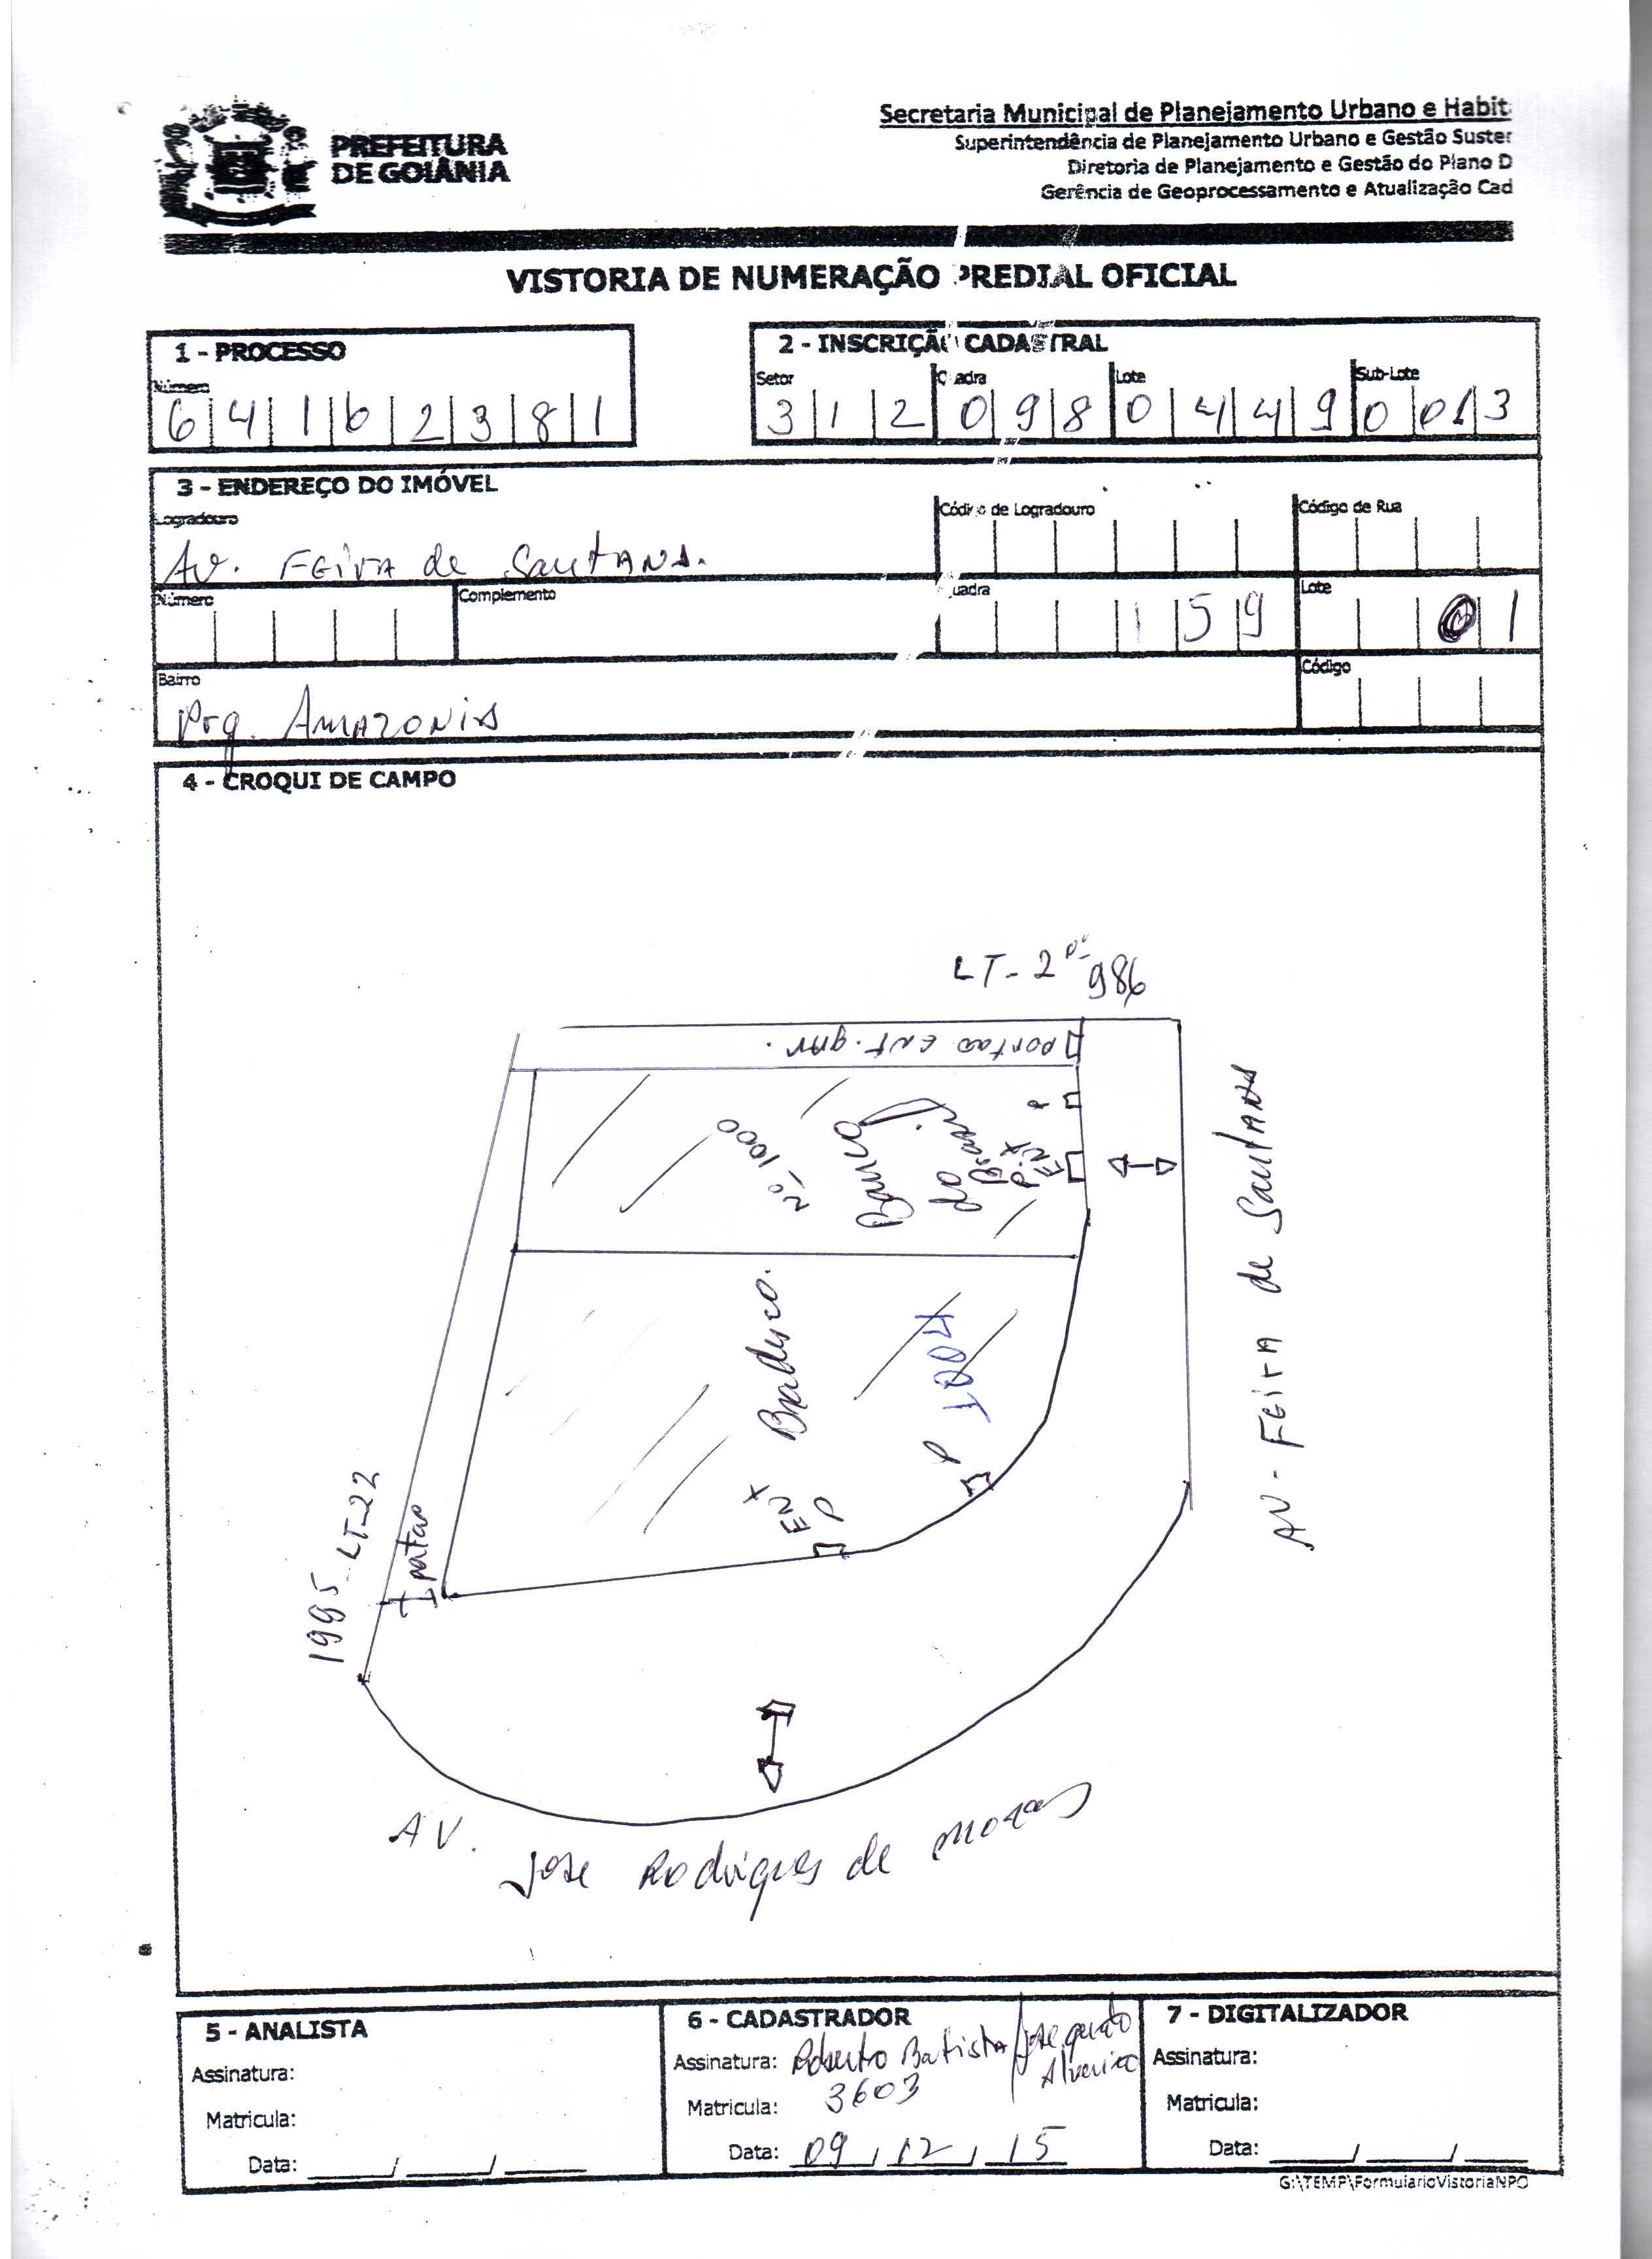 PREFEITURA
DE GOIÂNIA
Secretaria Municipal de Planejamento Urbano e Habit
Superintendência de Planejamento Urbano e Gestão Suste
Diretoria de Planejamento e Gestão do Plano D
Gerência de Geoprocessamento e Atualização Cad
VISTORIA DE NUMERAÇÃO PREDIAL OFICIAL
1 - PROCESSO
Número
6 4 1 6 2 3 8 1
2 - INSCRIÇÃO CADASTRAL
Setor Quadra Lote Sub-Lote
3 1 2 0 9 8 0 4 4 9 0 0 1 3
3 - ENDEREÇO DO IMÓVEL
Logradouro Código de Logradouro Código de Rua
Av. FEirA de SantANA.
Número Complemento Quadra Lote
1 5 9 0 1
Bairro Código
Prq. AMAZONiA
4 - CROQUI DE CAMPO
LT-2 nº 986
portao Ent. gAr.
P
Nº 1000
Banco
do
Brasil
P. EN
AV - FEirA de SantANA
Bradesco.
1004
P
EN
P
1995 LT-22
portao
AV. Jose Rodrigues de moraes
5 - ANALISTA
Assinatura:
Matricula:
Data: / /
6 - CADASTRADOR
Assinatura: Roberto Batista/Jose
Matricula: 3603
Data: 09 / 12 / 15
7 - DIGITALIZADOR
Assinatura:
Matricula:
Data: / /
G:\TEMP\FormularioVistoriaNPO